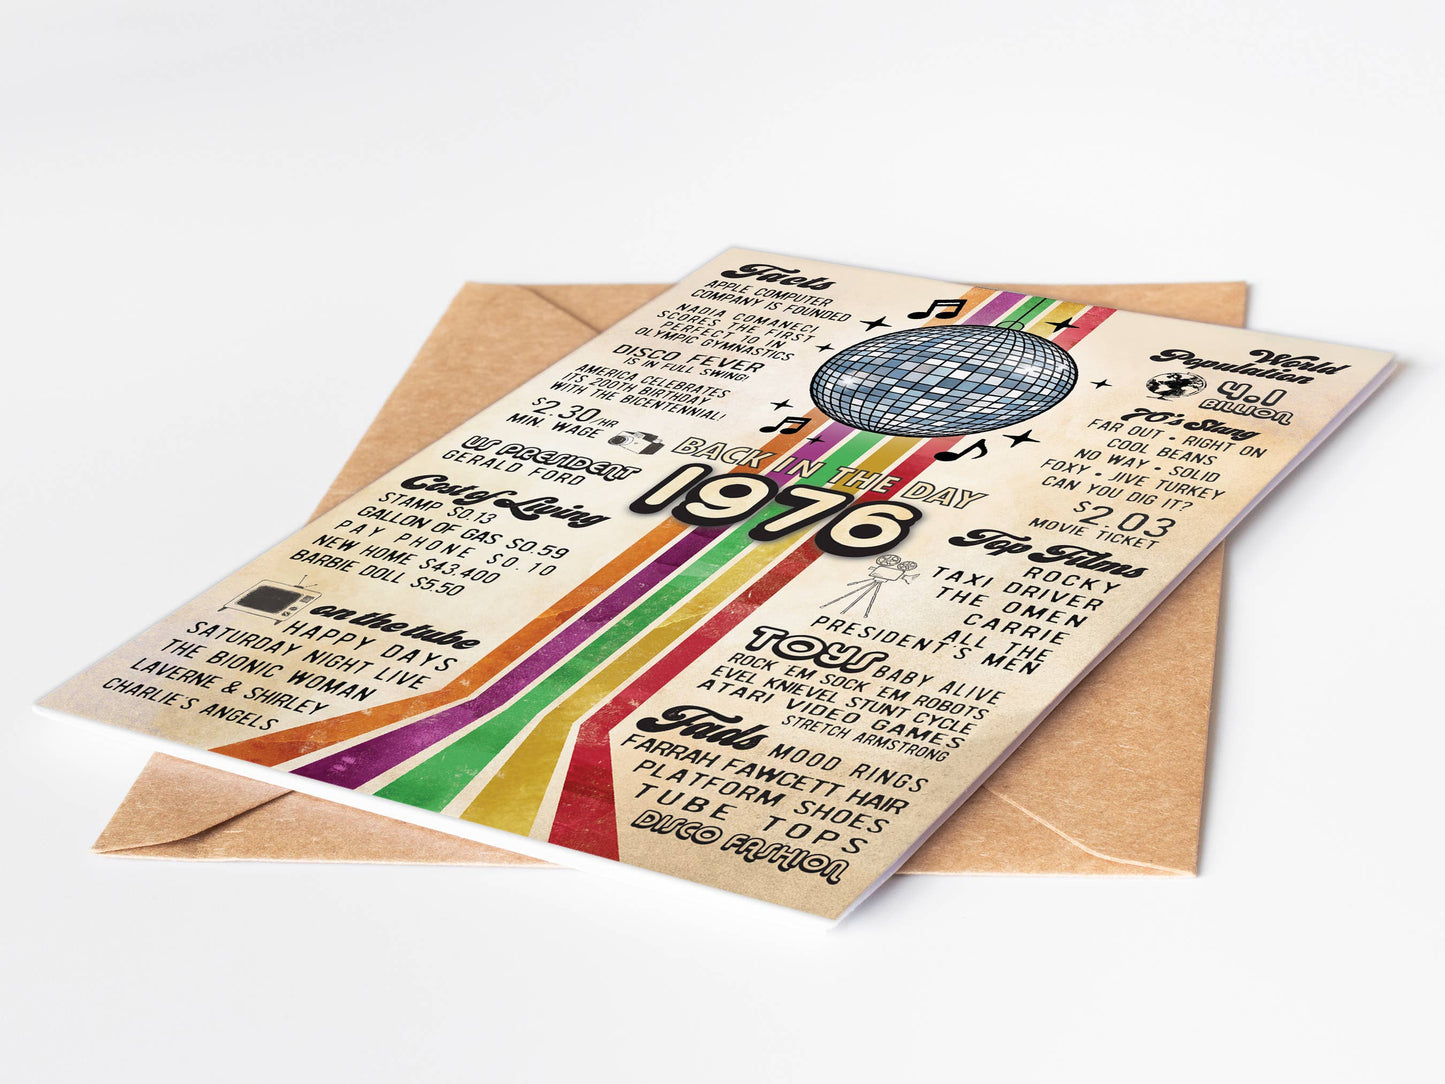 Facts
APPLE COMPUTER
COMPANY IS FOUNDED
NADIA COMANECI
SCORES THE FIRST
PERFECT 10 IN
OLYMPIC GYMNASTICS
DISCO FEVER
IS IN FULL SWING!
AMERICA CELEBRATES
ITS 200TH BIRTHDAY
WITH THE BICENTENNIAL!
$2.30/HR
MIN. WAGE
US PRESIDENT
GERALD FORD
Cost of Living
STAMP $0.13
GALLON OF GAS $0.59
PAY PHONE $0.10
NEW HOME $43,400
BARBIE DOLL $5.50
on the tube
HAPPY DAYS
SATURDAY NIGHT LIVE
THE BIONIC WOMAN
LAVERNE & SHIRLEY
CHARLIE'S ANGELS
BACK IN THE DAY
1976
World
Population
4.1
BILLION
76's Slang
FAR OUT • RIGHT ON
COOL BEANS
NO WAY • SOLID
FOXY • JIVE TURKEY
CAN YOU DIG IT?
$2.03
MOVIE TICKET
Top Films
ROCKY
TAXI DRIVER
THE OMEN
CARRIE
ALL THE
PRESIDENT'S MEN
TOYS BABY ALIVE
ROCK 'EM SOCK 'EM ROBOTS
EVEL KNIEVEL STUNT CYCLE
ATARI VIDEO GAMES
STRETCH ARMSTRONG
Fads MOOD RINGS
FARRAH FAWCETT HAIR
PLATFORM SHOES
TUBE TOPS
DISCO FASHION